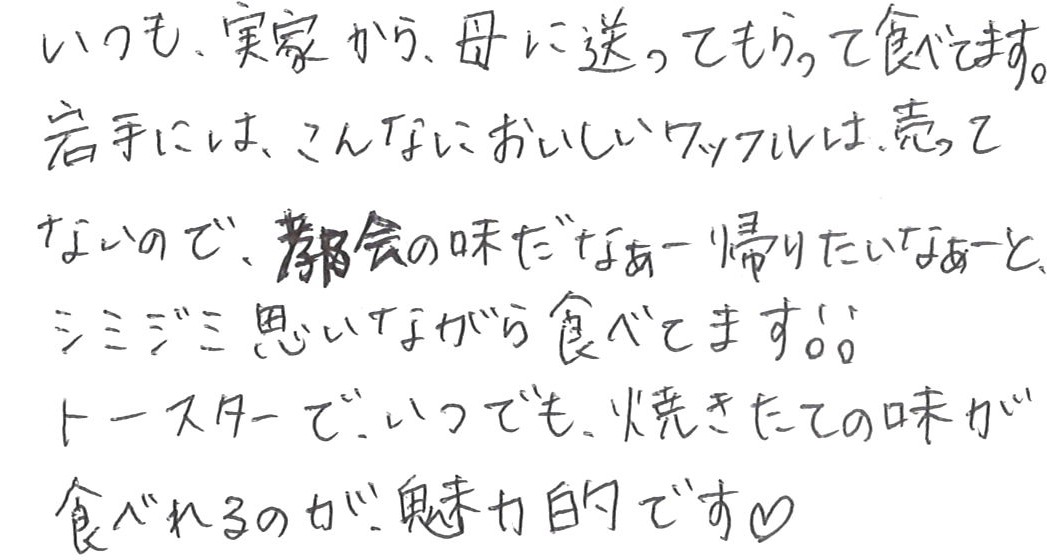 いつも、実家から、母に送ってもらって食べてます。
岩手には、こんなにおいしいワッフルは、売って
ないので、都会の味だなぁー帰りたいなぁーと、
シミジミ思いながら食べてます!!
トースターで、いつでも、焼きたての味が
食べれるのが、魅力的です♡